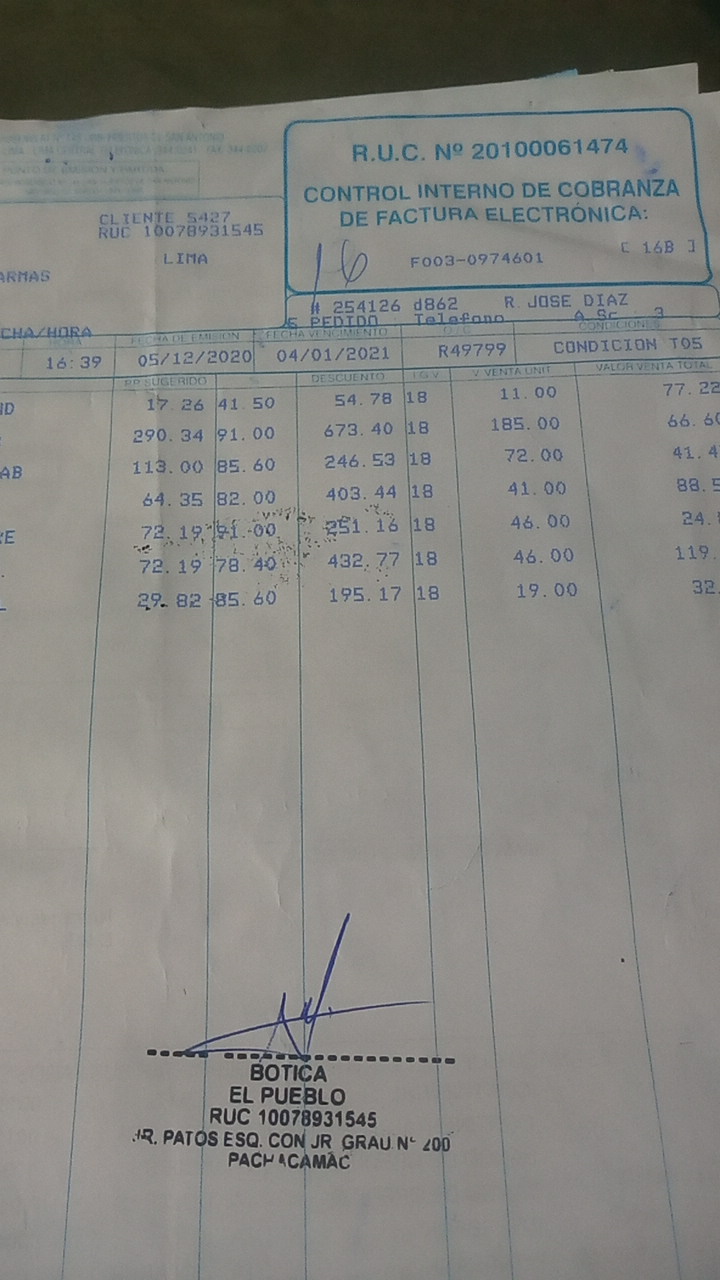 R.U.C. Nº 20100061474
CONTROL INTERNO DE COBRANZA
DE FACTURA ELECTRÓNICA:
F003-0974601 [ 16B ]
16
CLIENTE 5427
RUC 10078931545
LIMA
ARMAS
# 254126 d862 R. JOSE DIAZ
PEDIDO Telefono A Sr 3
CHA/HORA
HORA FECHA DE EMISION FECHA VENCIMIENTO CONDICIONES
16:39 05/12/2020 04/01/2021 R49799 CONDICION T05
P.P. SUGERIDO % DESCUENTO I.G.V. V. VENTA UNIT VALOR VENTA TOTAL
ND 17.26 41.50 54.78 18 11.00 77.22
290.34 91.00 673.40 18 185.00 66.60
AB 113.00 85.60 246.53 18 72.00 41.4
64.35 82.00 403.44 18 41.00 88.5
RE 72.19 91.00 251.16 18 46.00 24.
72.19 78.40 432.77 18 46.00 119.
29.82 85.60 195.17 18 19.00 32.
BOTICA
EL PUEBLO
RUC 10078931545
JR. PATOS ESQ. CON JR GRAU Nº 200
PACHACAMAC